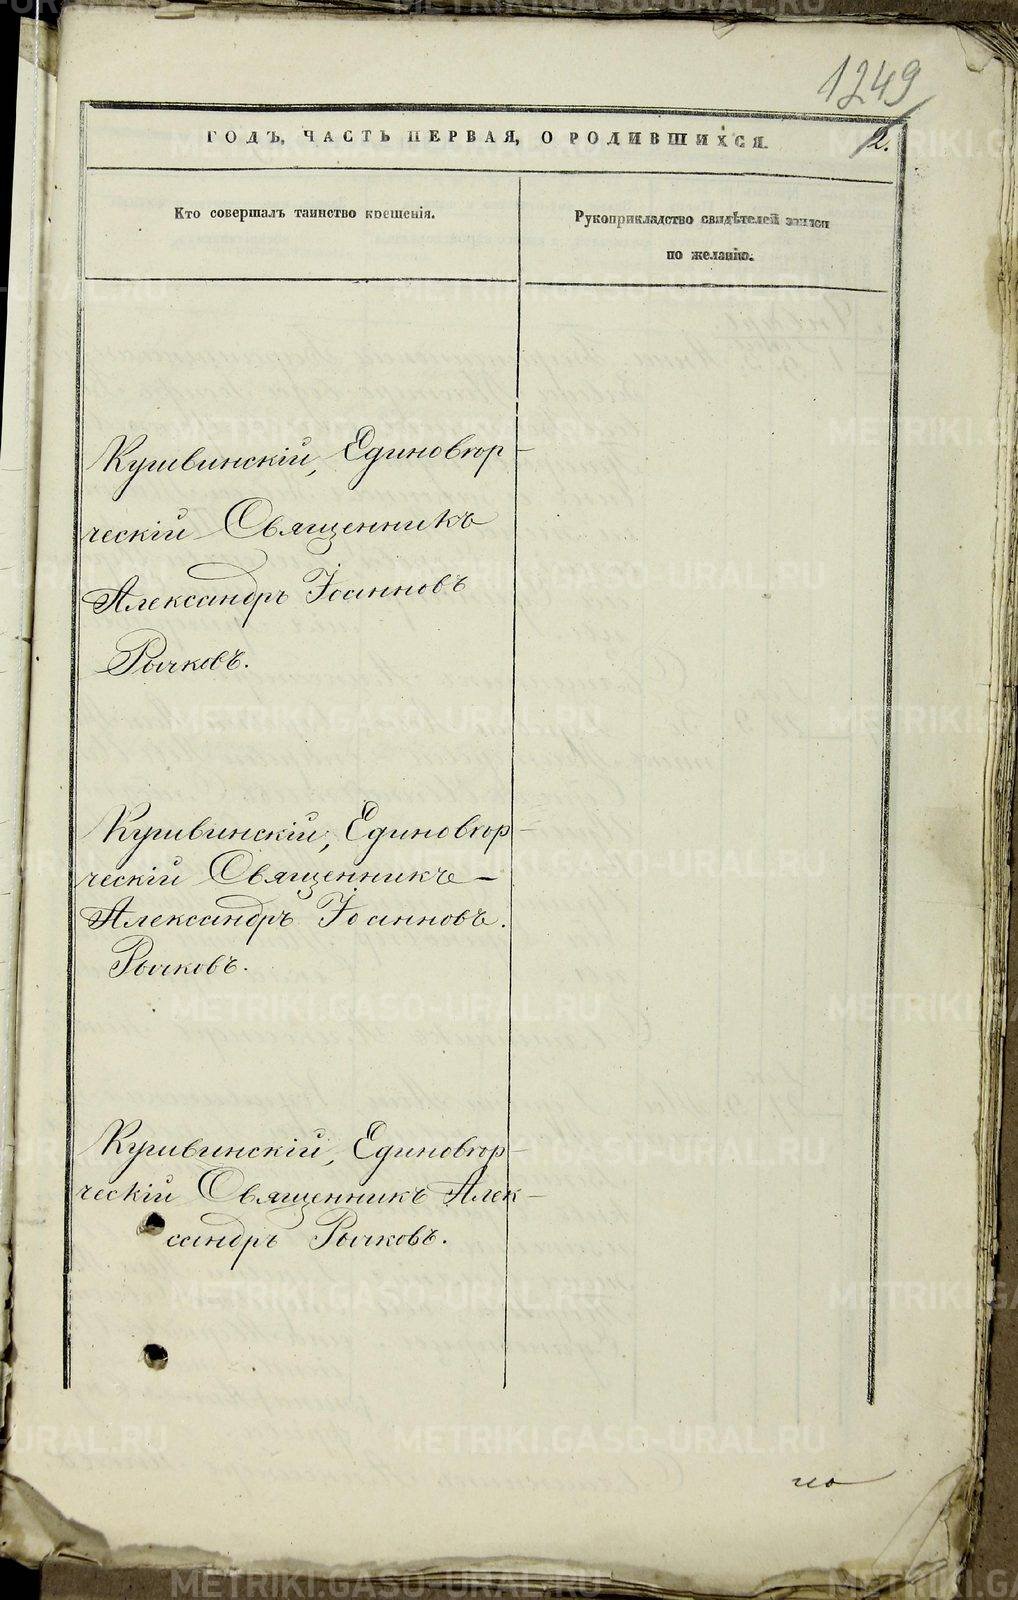 1249
ГОДЪ, ЧАСТЬ ПЕРВАЯ, О РОДИВШИХСЯ.
2.
Кто совершалъ таинство крещенія.
Рукоприкладство свидѣтелей записи
по желанію.
Кушвинскій, Единовѣр-
ческій Священникъ
Александръ Іоанновъ
Рычковъ.
Кушвинскій, Единовѣр-
ческій Священникъ
Александръ Іоанновъ.
Рычковъ.
Кушвинскій, Единовѣр-
ческій Священникъ Алек-
сандръ Рычковъ.
METRIKI.GASO-URAL.RU